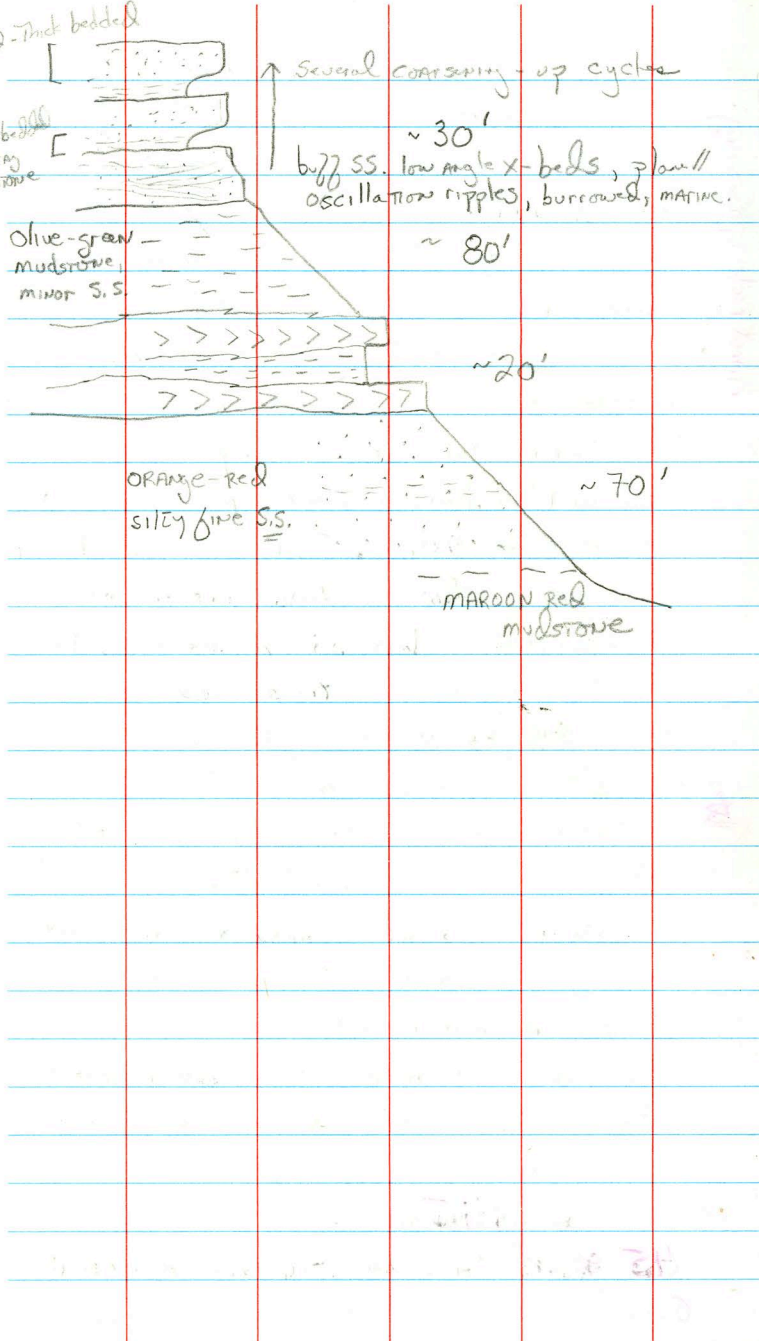 -Thick bedded
Several coarsening-up cycles
bedded
~30'
buff SS. low angle x-beds, plan//
oscillation ripples, burrowed, marine.
Olive-green
mudstone,
minor S.S.
~ 80'
~20'
ORANGE-Red
silty fine S.S.
~70'
MAROON Red
mudstone